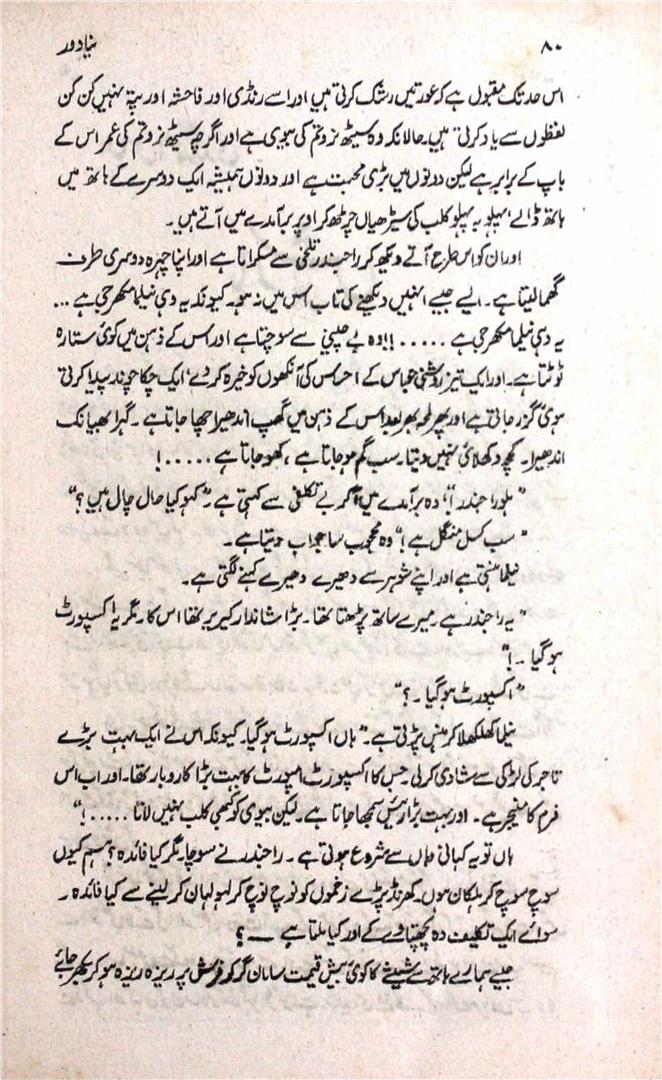 ۸۰
نیا دور
اس حد تک مقبول ہے کہ عورتیں رشک کرتی ہیں اور اسے رنڈی اور فاحشہ اور پتہ نہیں کن کن
لفظوں سے یاد کرتی ہیں۔ حالانکہ وہ سیٹھ نروتم کی بیوی ہے اور اگرچہ سیٹھ نروتم کی عمر اس کے
باپ کے برابر ہے لیکن دونوں میں بڑی محبت ہے اور دونوں ہمیشہ ایک دوسرے کے ہاتھ میں
ہاتھ ڈالے، پہلو بہ پہلو کلب کی سیڑھیاں چڑھ کر اوپر برآمدے میں آتے ہیں۔
اور ان کو اس طرح آتے دیکھ کر راجندر تلخی سے مسکراتا ہے اور اپنا چہرہ دوسری طرف
گھما لیتا ہے۔ ایسے جیسے انہیں دیکھنے کی تاب اس میں نہ ہو۔ کیونکہ یہ وہی نیلما مکھرجی ہے ...
یہ وہی نیلما مکھرجی ہے ..... !! وہ بے چینی سے سوچتا ہے اور اس کے ذہن میں کوئی ستارہ
ٹوٹتا ہے۔ اور ایک تیز روشنی عباس کے احساس کی آنکھوں کو خیرہ کر دے، ایک چکا چوند پیدا کرتی
ہوئی گزر جاتی ہے اور پھر لمحہ بھر بعد اس کے ذہن میں گھپ اندھیرا چھا جاتا ہے۔ گہرا بھیانک
اندھیرا۔ کچھ دکھلائی نہیں دیتا۔ سب گم ہو جاتا ہے، کھو جاتا ہے ..... !
"ہلو راجندر!" وہ برآمدے میں آ کر بے تکلفی سے کہتی ہے۔ "کہو کیا حال چال ہیں؟"
"سب کسل منگل ہے!" وہ محجوب سا جواب دیتا ہے۔
نیلما ہنستی ہے اور اپنے شوہر سے دھیرے دھیرے کہنے لگتی ہے۔
"یہ راجندر ہے۔ میرے ساتھ پڑھتا تھا۔ بڑا شاندار کیریر تھا اس کا۔ مگر یہ اکسپورٹ
ہو گیا۔!"
"اکسپورٹ ہو گیا۔؟"
نیلما کھلکھلا کر ہنس پڑتی ہے۔ "ہاں اکسپورٹ ہو گیا۔ کیونکہ اس نے ایک بہت بڑے
تاجر کی لڑکی سے شادی کر لی۔ جس کا اکسپورٹ امپورٹ کا بہت بڑا کاروبار تھا۔ اور اب اس
فرم کا منیجر ہے۔ اور بہت بڑا رئیس سمجھا جاتا ہے۔ لیکن بیوی کو کبھی کلب نہیں لاتا ..... !"
ہاں تو یہ کہانی وہاں سے شروع ہوتی ہے۔ راجندر نے سوچا۔ مگر کیا فائدہ؟ ہم کیوں
سوچ سوچ کر ہلکان ہوں۔ کھرنڈ پڑے زخموں کو نوچ نوچ کر لہولہان کر لینے سے کیا فائدہ۔
سوائے ایک تکلیف دہ پچھتاوے کے اور کیا ملتا ہے ــــ ؟
جیسے ہمارے ہاتھ سے شیشے کا کوئی بیش قیمت سامان گر کر فرش پر ریزہ ریزہ ہو کر بکھر جائے